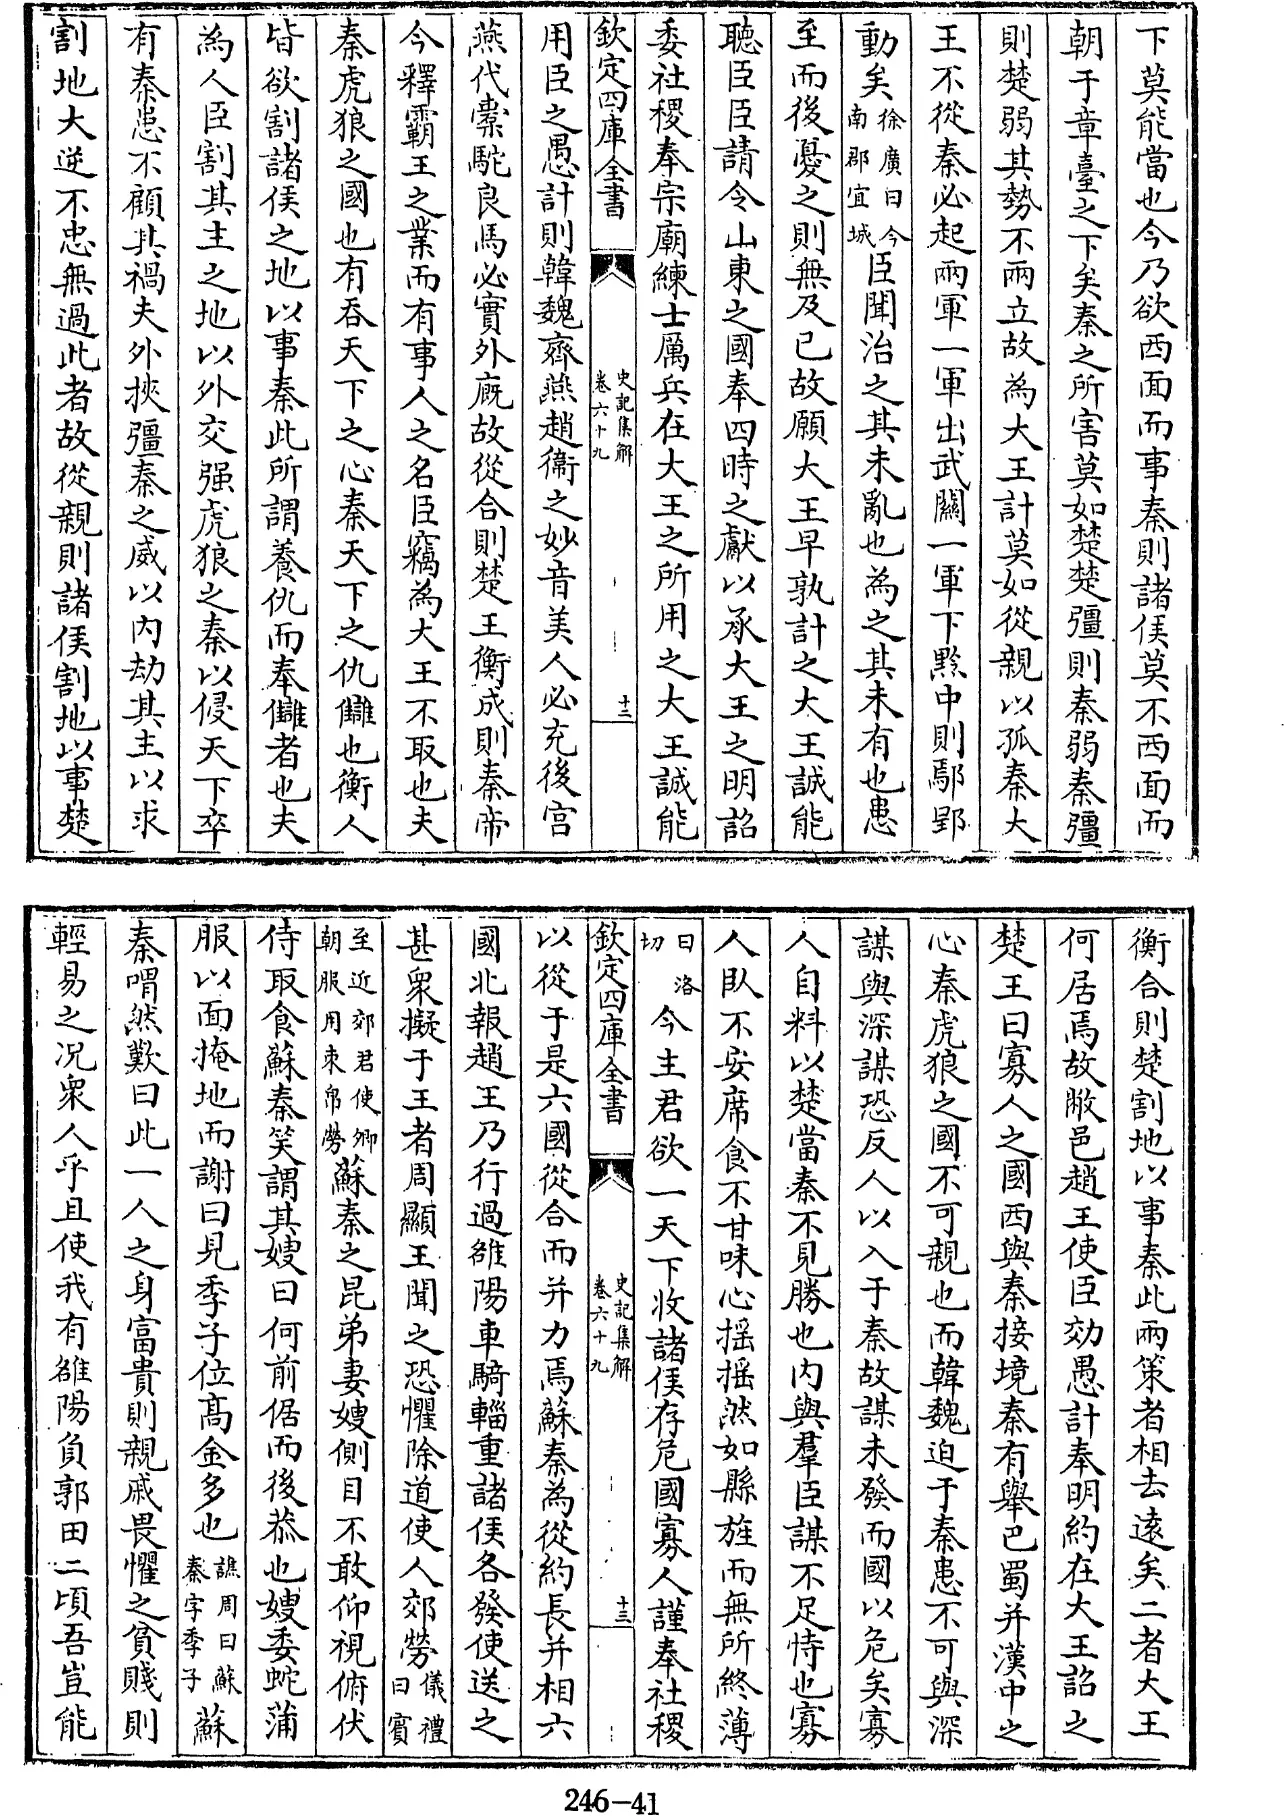 下莫能當也今乃欲西面而事秦則諸侯莫不西面而
朝于章臺之下矣秦之所害莫如楚楚彊則秦弱秦彊
則楚弱其勢不兩立故為大王計莫如從親以孤秦大
王不從秦必起兩軍一軍出武關一軍下黔中則鄢郢
動矣徐廣曰今南郡宜城臣聞治之其未亂也為之其未有也患
至而後憂之則無及已故願大王早孰計之大王誠能
聽臣臣請令山東之國奉四時之獻以承大王之明詔
委社稷奉宗廟練士厲兵在大王之所用之大王誠能
欽定四庫全書
史記集解
卷六十九
十二
用臣之愚計則韓魏齊燕趙衛之妙音美人必充後宮
燕代橐駝良馬必實外廐故從合則楚王衡成則秦帝
今釋霸王之業而有事人之名臣竊為大王不取也夫
秦虎狼之國也有吞天下之心秦天下之仇讎也衡人
皆欲割諸侯之地以事秦此所謂養仇而奉讎者也夫
為人臣割其主之地以外交强虎狼之秦以侵天下卒
有秦患不顧其禍夫外挾彊秦之威以内劫其主以求
割地大逆不忠無過此者故從親則諸侯割地以事楚
衡合則楚割地以事秦此兩策者相去遠矣二者大王
何居焉故敝邑趙王使臣効愚計奉明約在大王詔之
楚王曰寡人之國西與秦接境秦有舉巴蜀并漢中之
心秦虎狼之國不可親也而韓魏迫于秦患不可與深
謀與深謀恐反人以入于秦故謀未發而國以危矣寡
人自料以楚當秦不見勝也内與羣臣謀不足恃也寡
人臥不安席食不甘味心搖搖然如縣旌而無所終薄
曰洛切今主君欲一天下收諸侯存危國寡人謹奉社稷
欽定四庫全書
史記集解
卷六十九
十三
以從于是六國從合而并力焉蘇秦為從約長并相六
國北報趙王乃行過雒陽車騎輜重諸侯各發使送之
甚衆擬于王者周顯王聞之恐懼除道使人郊勞儀禮曰賓
至近郊君使卿朝服用束帛勞蘇秦之昆弟妻嫂側目不敢仰視俯伏
侍取食蘇秦笑謂其嫂曰何前倨而後恭也嫂委蛇蒲
服以面掩地而謝曰見季子位高金多也譙周曰蘇秦字季子蘇
秦喟然歎曰此一人之身富貴則親戚畏懼之貧賤則
輕易之況衆人乎且使我有雒陽負郭田二頃吾豈能
246-41